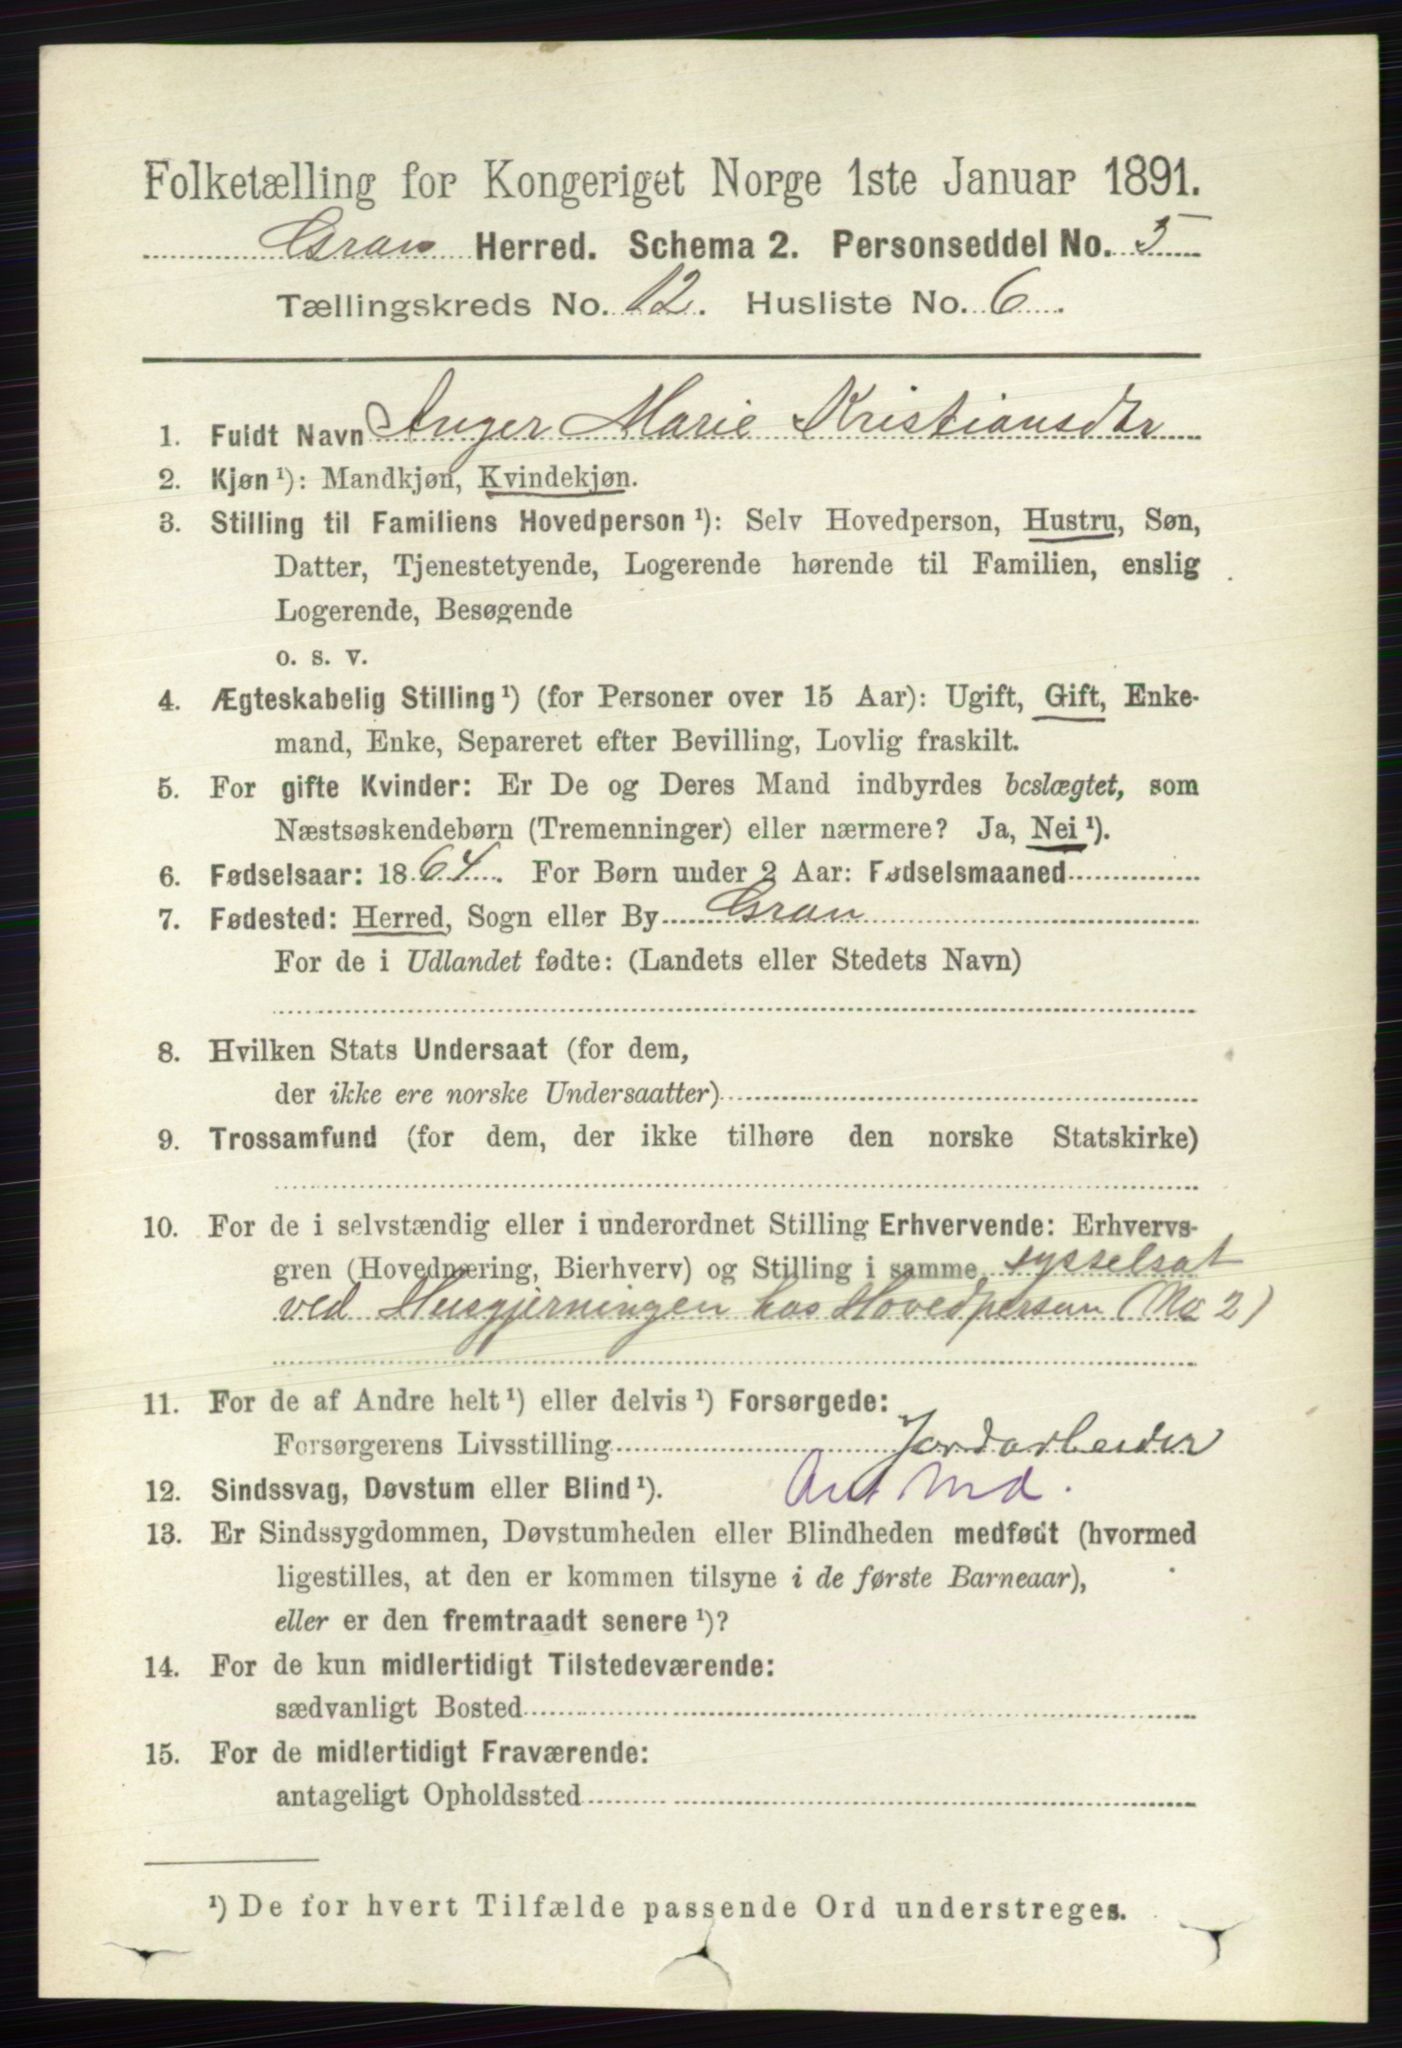 Folketælling for Kongeriget Norge 1ste Januar 1891.
Gran Herred. Schema 2. Personseddel No. 5
Tællingskreds No. 12. Husliste No. 6
1. Fuldt Navn Inger Marie Kristiansdtr
2. Kjøn ¹): Mandkjøn, Kvindekjøn.
3. Stilling til Familiens Hovedperson ¹): Selv Hovedperson, Hustru, Søn,
Datter, Tjenestetyende, Logerende hørende til Familien, enslig
Logerende, Besøgende
o. s. v.
4. Ægteskabelig Stilling ¹) (for Personer over 15 Aar): Ugift, Gift, Enke-
mand, Enke, Separeret efter Bevilling, Lovlig fraskilt.
5. For gifte Kvinder: Er De og Deres Mand indbyrdes beslægtet, som
Næstsøskendebørn (Tremenninger) eller nærmere? Ja, Nei ¹).
6. Fødselsaar: 1864. For Børn under 2 Aar: Fødselsmaaned
7. Fødested: Herred, Sogn eller By Gran
For de i Udlandet fødte: (Landets eller Stedets Navn)
8. Hvilken Stats Undersaat (for dem,
der ikke ere norske Undersaatter)
9. Trossamfund (for dem, der ikke tilhøre den norske Statskirke)
10. For de i selvstændig eller i underordnet Stilling Erhvervende: Erhvervs-
gren (Hovednæring, Bierhverv) og Stilling i samme sysselsat
ved Husgjerningen hos Hovedperson (No 2)
11. For de af Andre helt ¹) eller delvis ¹) Forsørgede:
Forsørgerens Livsstilling Jordarbeider
12. Sindssvag, Døvstum eller Blind ¹).
13. Er Sindssygdommen, Døvstumheden eller Blindheden medfødt (hvormed
ligestilles, at den er kommen tilsyne i de første Barneaar),
eller er den fremtraadt senere ¹)?
14. For de kun midlertidigt Tilstedeværende:
sædvanligt Bosted
15. For de midlertidigt Fraværende:
antageligt Opholdssted
¹) De for hvert Tilfælde passende Ord understreges.